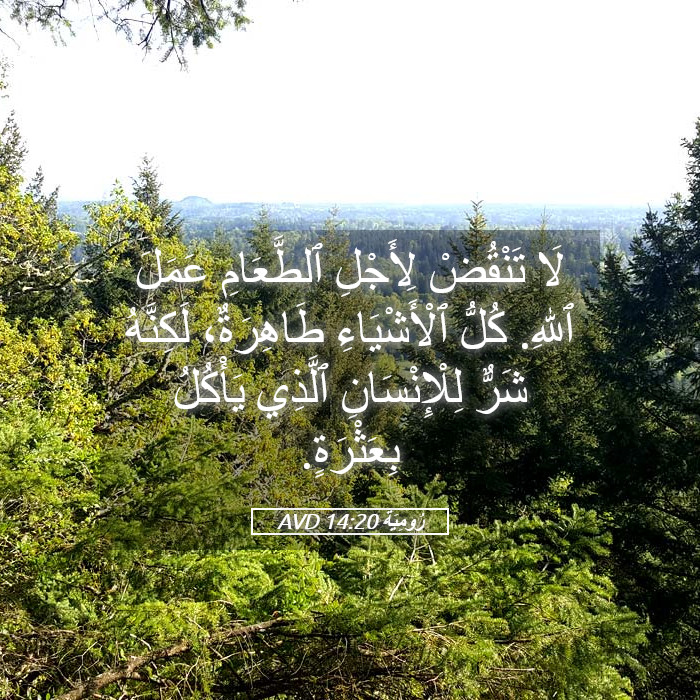 لَا تَنْقُضْ لِأَجْلِ ٱلطَّعَامِ عَمَلَ
ٱللهِ. كُلُّ ٱلْأَشْيَاءِ طَاهِرَةٌ، لَكِنَّهُ
شَرٌّ لِلْإِنْسَانِ ٱلَّذِي يَأْكُلُ
بِعَثْرَةٍ.
رُومِيَةَ 14:20 AVD